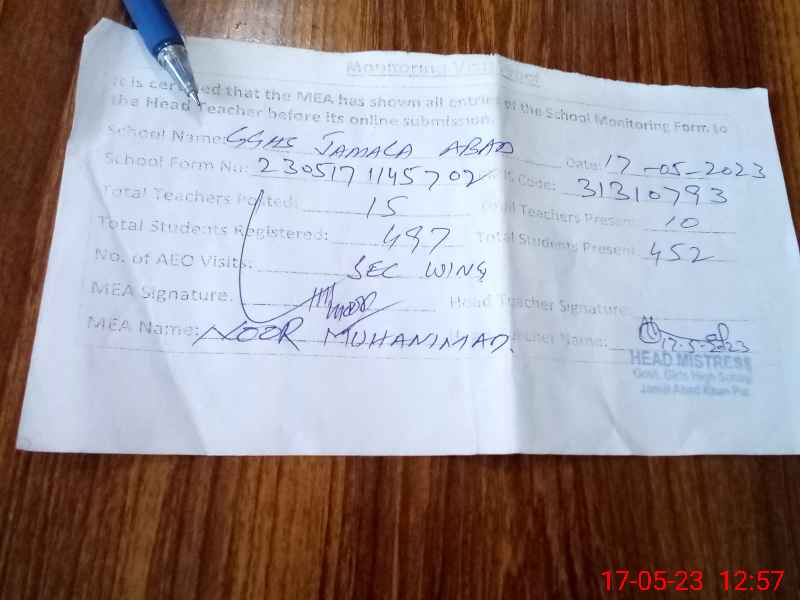 Monitoring Visit
It is certified that the MEA has shown all entries of the School Monitoring Form to
the Head Teacher before its online submission.
School Name: GGHS JAMALA ABAD Date: 17-05-2023
School Form No: 2305171145702 Code: 31310793
Total Teachers Posted: 15 Total Teachers Present: 10
Total Students Registered: 497 Total Students Present: 452
No. of AEO Visits: SEC WING
MEA Signature: Noor Head Teacher Signature:
MEA Name: NOOR MUHAMMAD. Teacher Name: 17-5-2023
HEAD MISTRESS
Govt. Girls High School
Jamal Abad
17-05-23 12:57